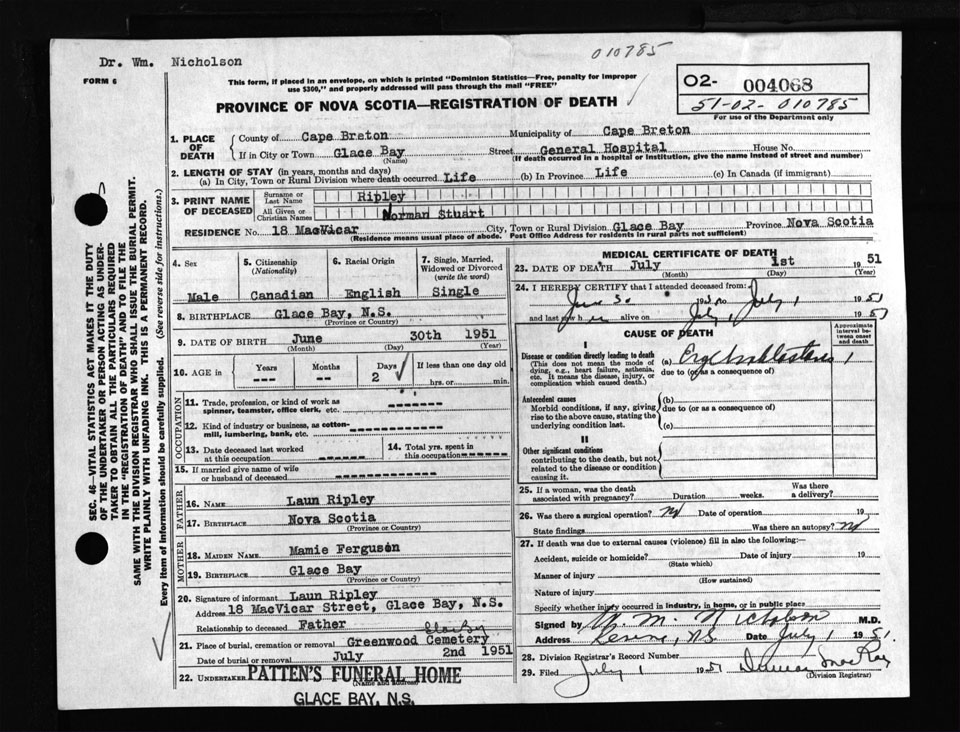 Dr. Wm. Nicholson
010785
FORM 6
This form, if placed in an envelope, on which is printed "Dominion Statistics—Free, penalty for improper
use $300," and properly addressed will pass through the mail "FREE"
PROVINCE OF NOVA SCOTIA—REGISTRATION OF DEATH
02- 004068
51-02-010785
For use of the Department only
SEC. 46—VITAL STATISTICS ACT MAKES IT THE DUTY
OF THE UNDERTAKER OR PERSON ACTING AS UNDER-
TAKER TO OBTAIN ALL THE PARTICULARS REQUIRED
IN THE "REGISTRATION OF DEATH" AND TO FILE THE
SAME WITH THE DIVISION REGISTRAR WHO SHALL ISSUE THE BURIAL PERMIT.
WRITE PLAINLY WITH UNFADING INK. THIS IS A PERMANENT RECORD.
Every item of information should be carefully supplied. (See reverse side for instructions.)
1. PLACE OF DEATH
County of Cape Breton Municipality of Cape Breton
If in City or Town Glace Bay Street General Hospital House No.
(Name) (If death occurred in a hospital or institution, give the name instead of street and number)
2. LENGTH OF STAY (in years, months and days)
(a) In City, Town or Rural Division where death occurred Life (b) In Province Life (c) In Canada (if immigrant)
3. PRINT NAME OF DECEASED
Surname or Last Name Ripley
All Given or Christian Names Norman Stuart
RESIDENCE No. 18 MacVicar City, Town or Rural Division Glace Bay Province Nova Scotia
(Residence means usual place of abode. Post Office Address for residents in rural parts not sufficient)
4. Sex Male
5. Citizenship (Nationality) Canadian
6. Racial Origin English
7. Single, Married, Widowed or Divorced (write the word) Single
8. BIRTHPLACE Glace Bay, N.S.
(Province or Country)
9. DATE OF BIRTH June 30th 1951
(Month) (Day) (Year)
10. AGE in Years --- Months -- Days 2 If less than one day old
hrs. or min.
OCCUPATION
11. Trade, profession, or kind of work as
spinner, teamster, office clerk, etc. -------
12. Kind of industry or business, as cotton-
mill, lumbering, bank, etc. ------------
13. Date deceased last worked
at this occupation ------
14. Total yrs. spent in
this occupation ------
15. If married give name of wife
or husband of deceased -------------
FATHER
16. NAME Laun Ripley
17. BIRTHPLACE Nova Scotia
(Province or Country)
MOTHER
18. MAIDEN NAME Mamie Ferguson
19. BIRTHPLACE Glace Bay
(Province or Country)
20. Signature of informant Laun Ripley
Address 18 MacVicar Street, Glace Bay, N.S.
Relationship to deceased Father
21. Place of burial, cremation or removal Greenwood Cemetery
Date of burial or removal July 2nd 1951
22. UNDERTAKER PATTEN'S FUNERAL HOME
(Name and Address)
GLACE BAY, N.S.
MEDICAL CERTIFICATE OF DEATH
23. DATE OF DEATH July 1st 1951
(Month) (Day) (Year)
24. I HEREBY CERTIFY that I attended deceased from:
June 30 to July 1 1951
and last saw h alive on July 1 1951
CAUSE OF DEATH
Approximate interval between onset and death
I
Disease or condition directly leading to death (a)
(This does not mean the mode of dying, e.g., heart failure, asthenia, etc. It means the disease, injury, or complication which caused death.)
due to (or as a consequence of)
Antecedent causes (b)
Morbid conditions, if any, giving rise to the above cause, stating the underlying condition last.
due to (or as a consequence of)
(c)
II
Other significant conditions
contributing to the death, but not related to the disease or condition causing it.
25. If a woman, was the death
associated with pregnancy? Duration weeks. Was there a delivery?
26. Was there a surgical operation? No Date of operation 19
State findings Was there an autopsy? No
27. If death was due to external causes (violence) fill in also the following:—
Accident, suicide or homicide? Date of injury 19
(State which)
Manner of injury
(How sustained)
Nature of injury
Specify whether injury occurred in industry, in home, or in public place
Signed by W. M. Nicholson M.D.
Address N.S. Date July 1 1951.
28. Division Registrar's Record Number
29. Filed July 1 1951 Duncan MacKay
(Division Registrar)